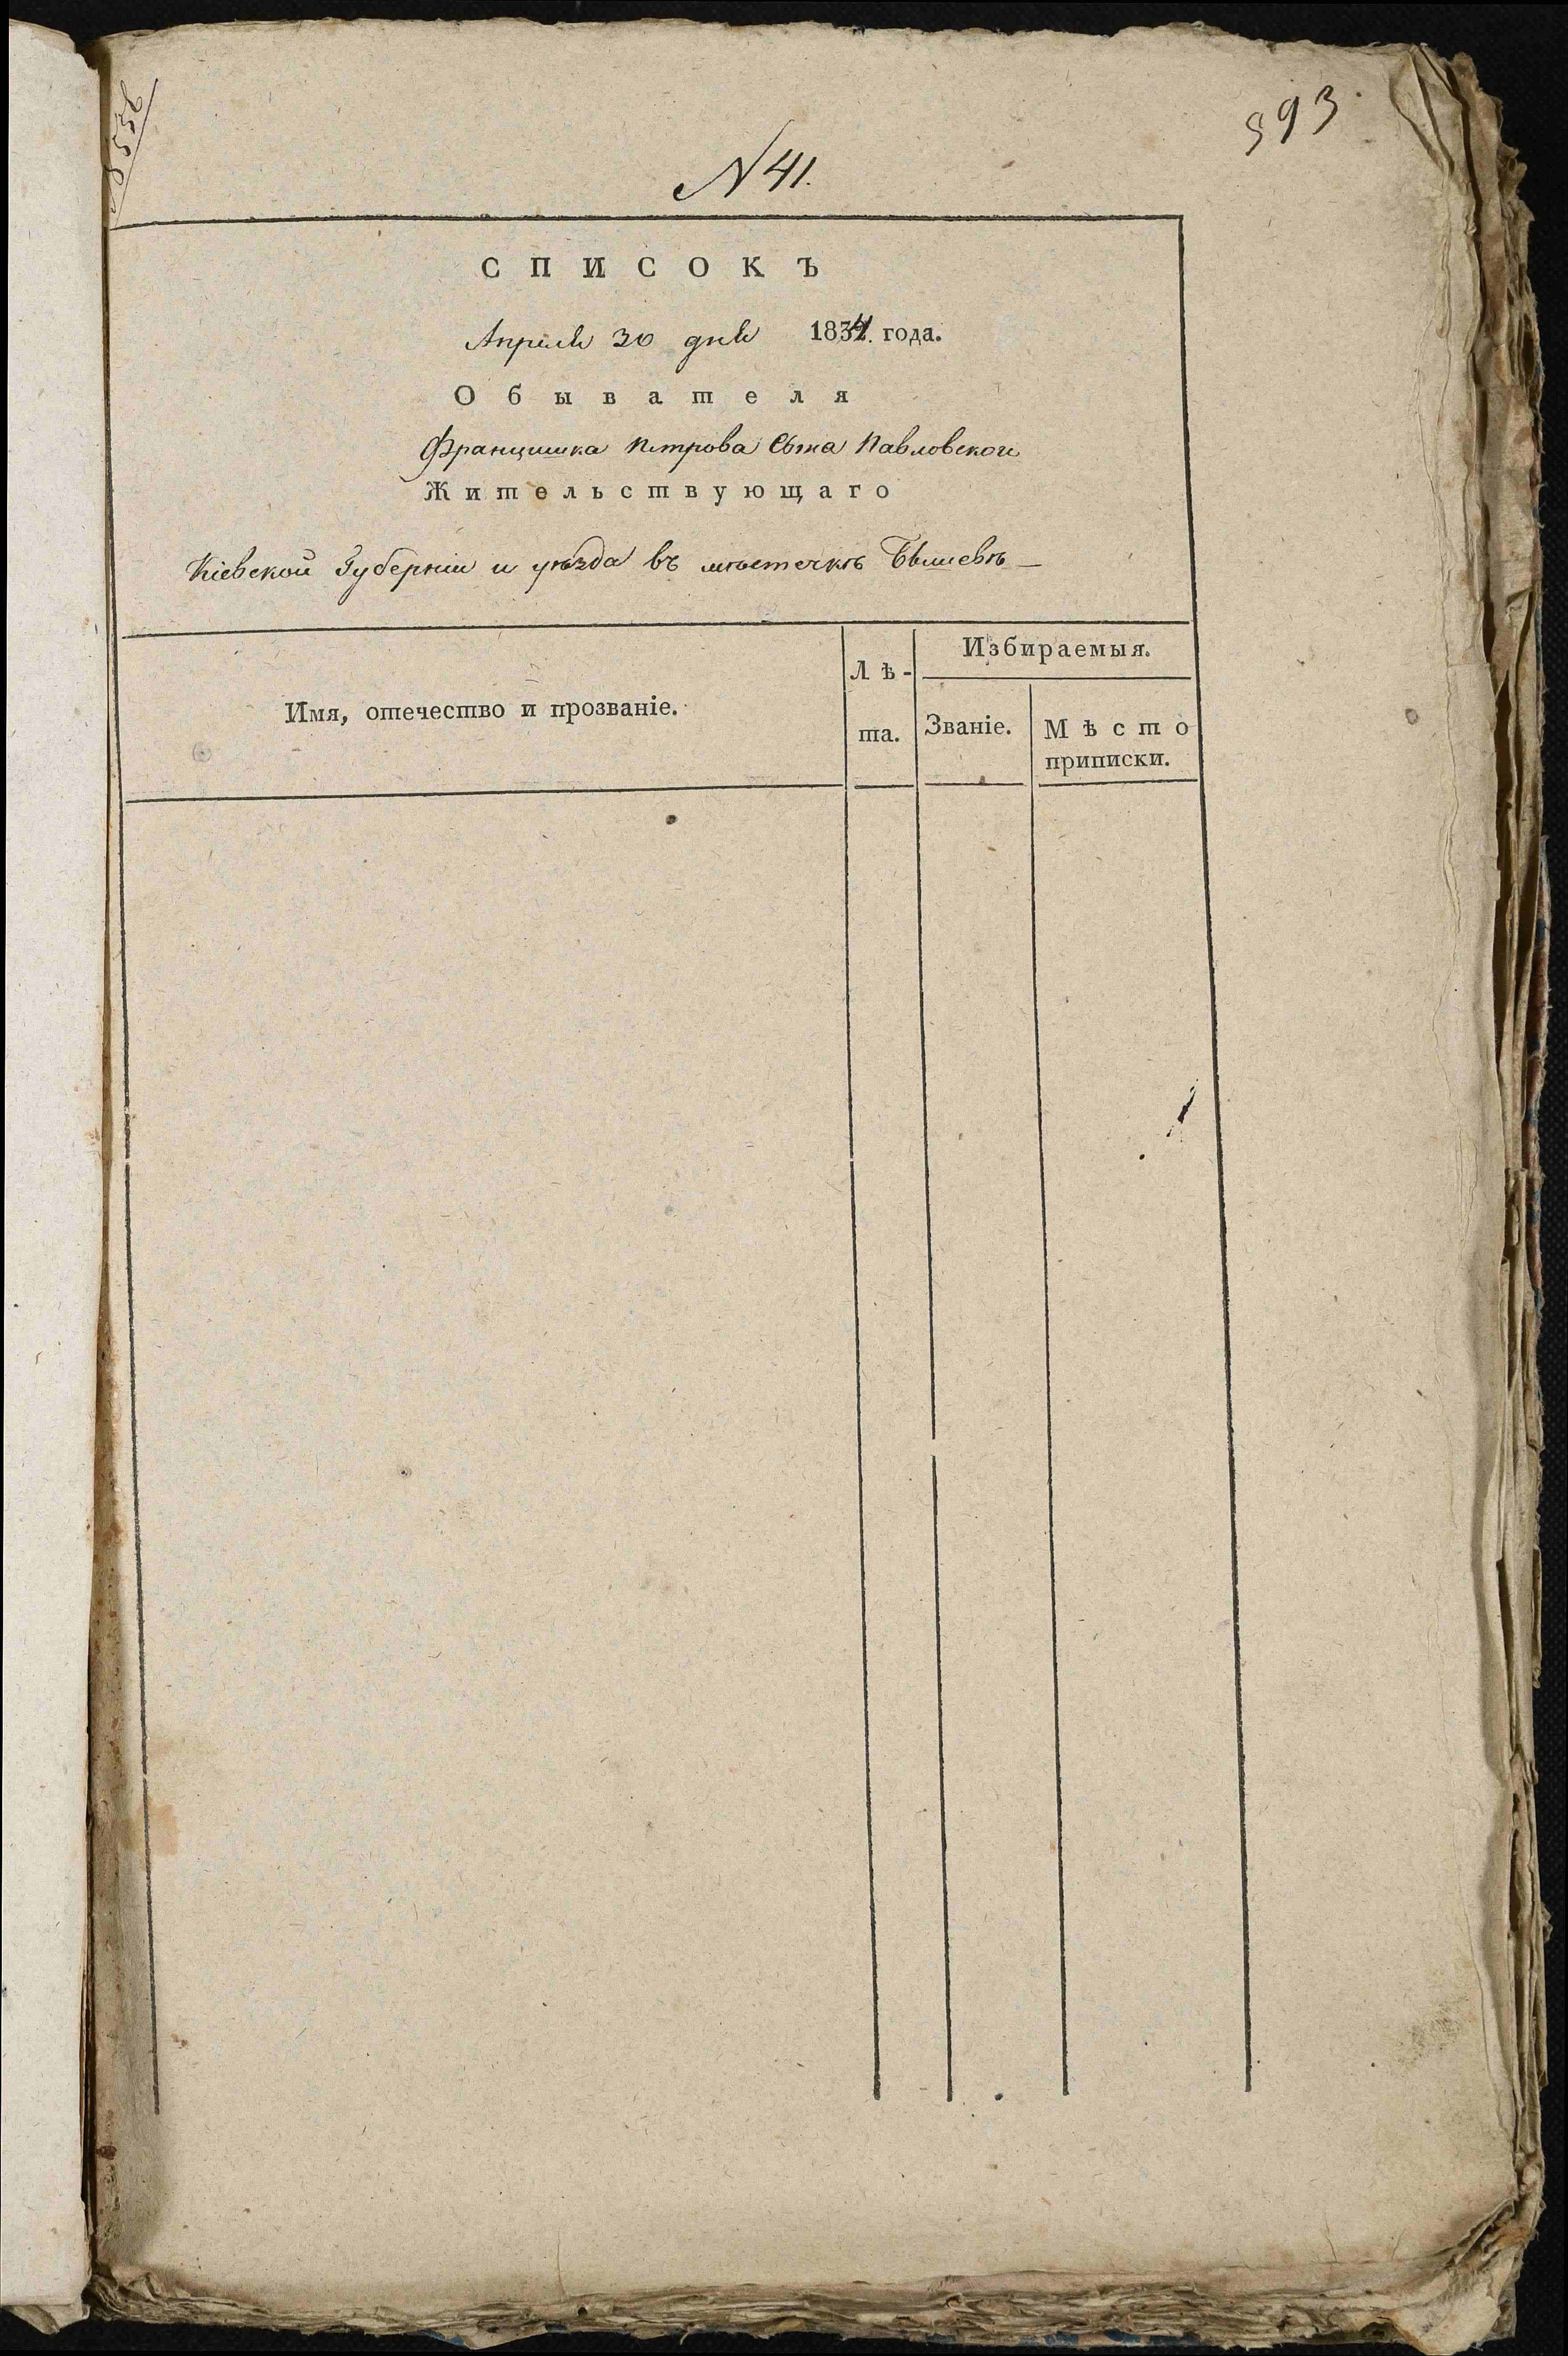 593.
N 41.
СПИСОКЪ
Апреля 30 дня 1834. года.
Обывателя
Францишка Петрова Сына Павловского
Жительствующаго
Кіевской Губерніи и уѣзда въ мѣстечкѣ Бышевѣ —
Имя, отечество и прозваніе.
Лѣ-
та.
Избираемыя.
Званіе.
Мѣсто
приписки.